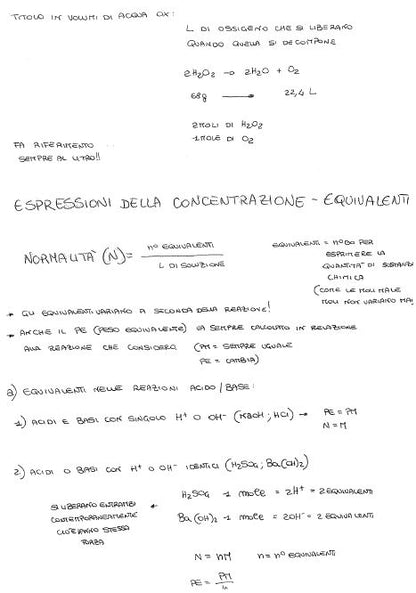 TITOLO IN VOLUMI DI ACQUA OX:
L DI OSSIGENO CHE SI LIBERANO
QUANDO QUELLA SI DECOMPONE
2H₂O₂ → 2H₂O + O₂
68g → 22,4 L
2MOLI DI H₂O₂
1MOLE DI O₂
FA RIFERIMENTO
SEMPRE AL LITRO!!
ESPRESSIONI DELLA CONCENTRAZIONE - EQUIVALENTI
NORMALITA' (N) = n° EQUIVALENTI / L DI SOLUZIONE
EQUIVALENTI = MODO PER
ESPRIMERE LA
QUANTITÀ DI SOSTANZA
CHIMICA
(COME LE MOLI MA LE
MOLI NON VARIANO MAI)
→ GLI EQUIVALENTI VARIANO A SECONDA DELLA REAZIONE!
→ ANCHE IL PE (PESO EQUIVALENTE) VA SEMPRE CALCOLATO IN RELAZIONE
ALLA REAZIONE CHE CONSIDERO (PM = SEMPRE UGUALE
PE = CAMBIA)
a) EQUIVALENTI NELLE REAZIONI ACIDO/BASE:
1) ACIDI E BASI CON SINGOLO H⁺ O OH⁻ (NaOH; HCl) → PE = PM
N = M
2) ACIDI O BASI CON H⁺ O OH⁻ IDENTICI (H₂SO₄; Ba(OH)₂)
H₂SO₄ 1 mole = 2H⁺ = 2 EQUIVALENTI
SI LIBERANO ENTRAMBI ←
CONTEMPORANEAMENTE
CIOÈ HANNO STESSA
FORZA
Ba(OH)₂ 1 mole = 2OH⁻ = 2 EQUIVALENTI
N = nM n = n° EQUIVALENTI
PE = PM / n